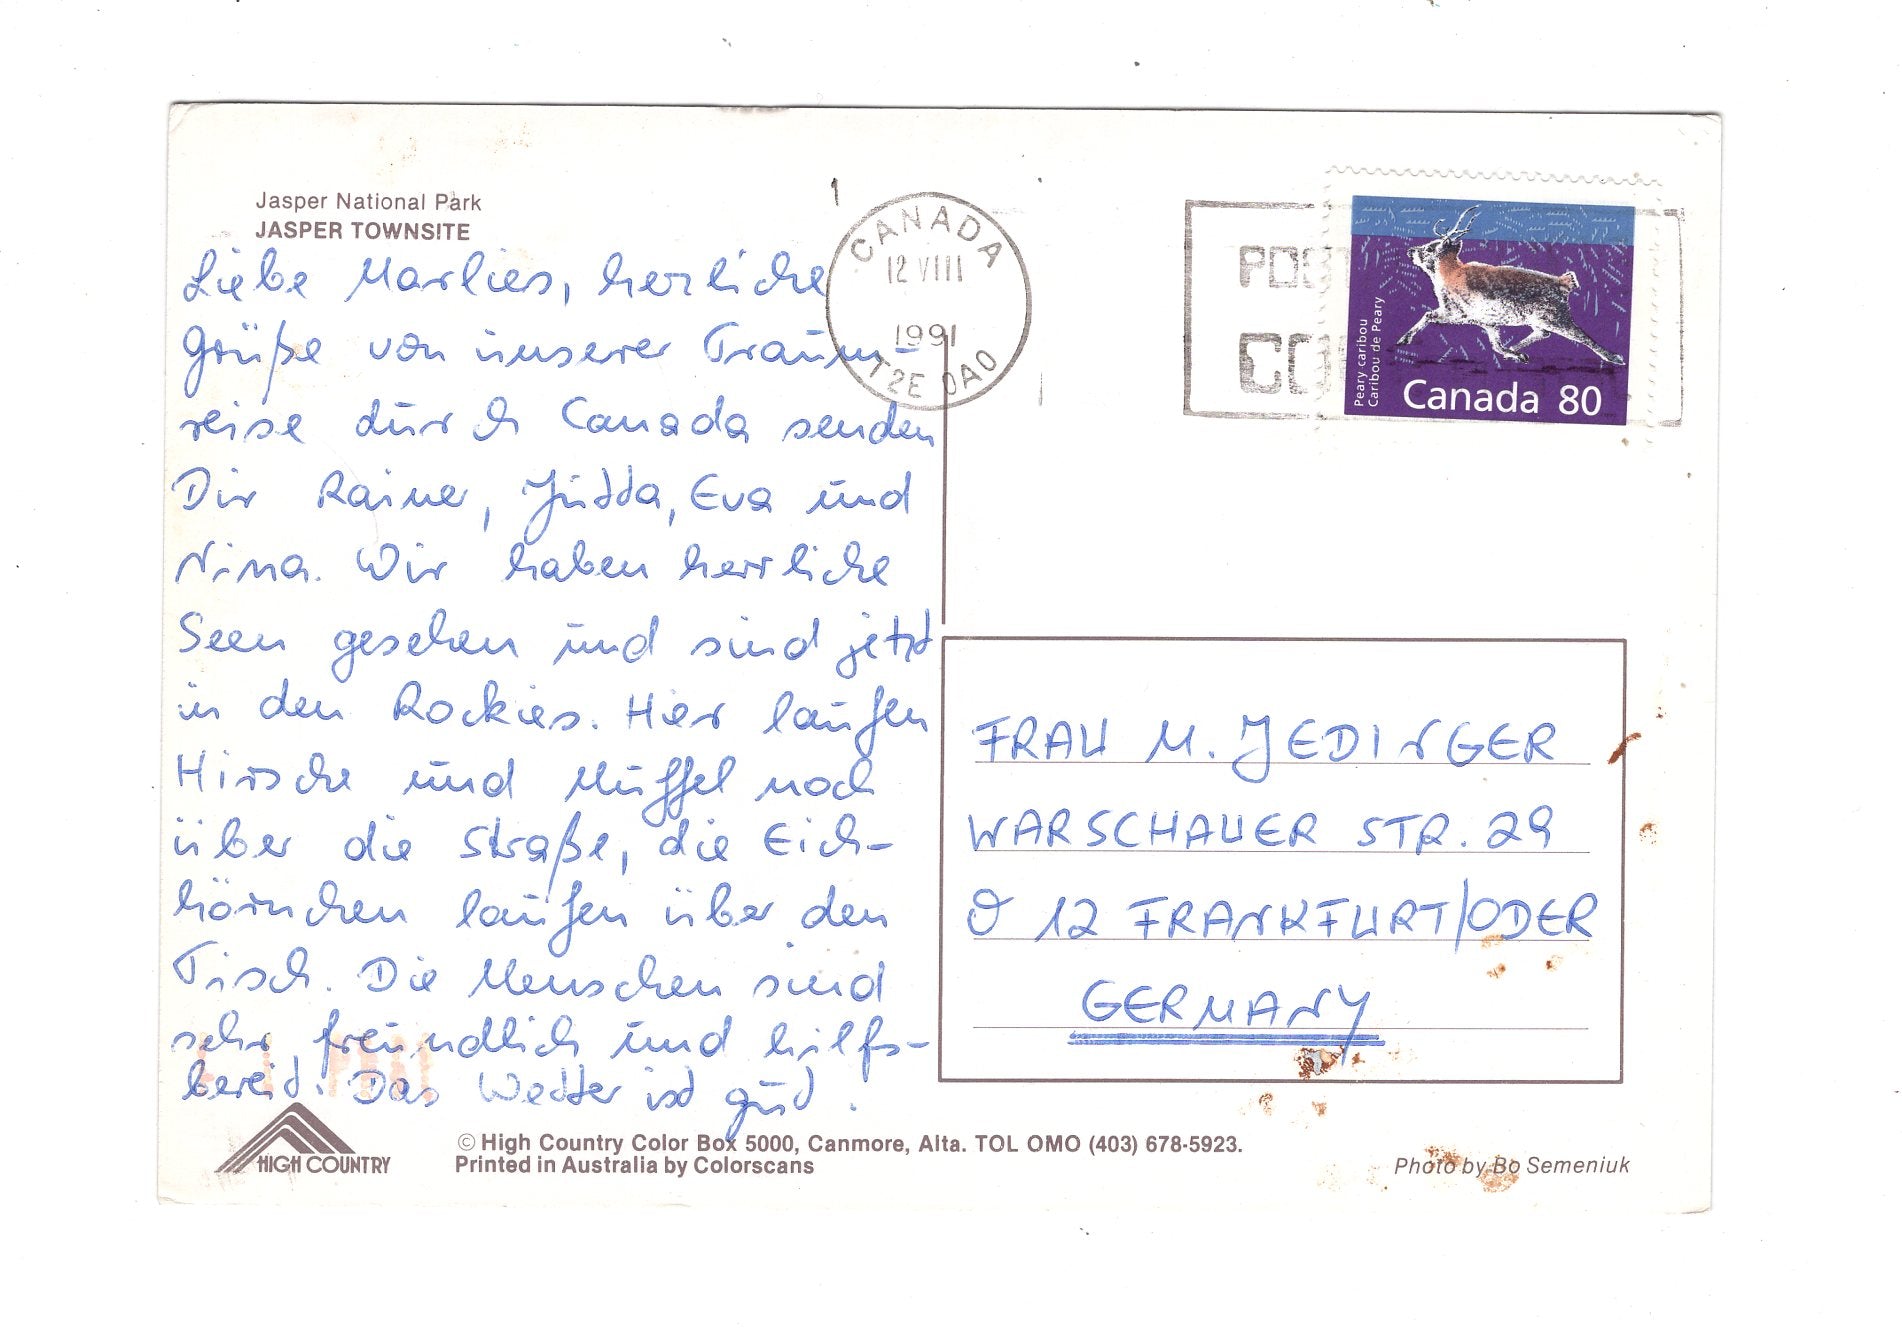 Jasper National Park
JASPER TOWNSITE
Liebe Marlies, herzliche
Grüße von unserer Traum-
reise durch Canada senden
Dir Rainer, Jutta, Eva und
Nina. Wir haben herrliche
Seen gesehen und sind jetzt
in den Rockies. Hier laufen
Hirsche und Muffel noch
über die Straße, die Eich-
hörnchen laufen über den
Tisch. Die Menschen sind
sehr freundlich und hilfs-
bereit. Das Wetter ist gut.
HIGH COUNTRY
© High Country Color Box 5000, Canmore, Alta. TOL OMO (403) 678-5923.
Printed in Australia by Colorscans
CANADA
12 VIII
1991
T2E 0A0
Peary caribou
Caribou de Peary
Canada 80
FRAU M. JEDINGER
WARSCHAUER STR. 29
O 12 FRANKFURT/ODER
GERMANY
Photo by Bo Semeniuk